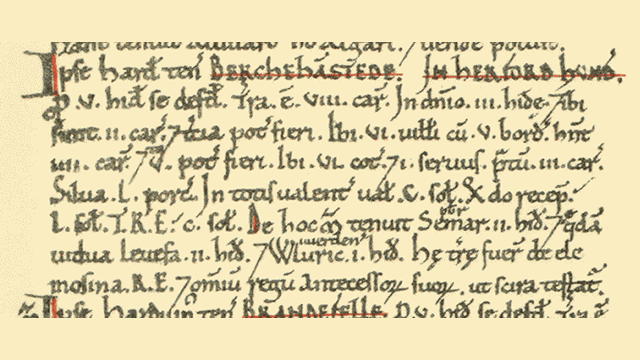 tenuit
Ipse hard̄ ten̄ BERCHEHĀSTEDE. IN HERFORD HVND̄.
ꝑ. v. hid̄ se defd̄. T̄ra. ē. viii. car̄. In dn̄io. iii. hide. ⁊ ibi
sunt. ii. car̄. ⁊ t̄cia pot̄ fieri. Ibi. vi. uilłi cū. v. bord̄. hn̄t
iiii. car̄. ⁊ v. pot̄ fieri. Ibi. vi. cot̄. ⁊ i. seruus. p̄tū. iii. car̄.
Silua. L. porc̄. In totis ualent̄ uał. c. soł. Q̄do recep̄.
L. soł. T.R.E. c. soł. De hoc m̄ tenuit Semar. ii. hid̄. ⁊ q̄dā
uidua Leuefa. ii. hid̄. ⁊ Wluric. i. hid̄. Hę t̄rę fuer̄ de ele
mosina. R.E. ⁊ om̄iū regū antecessoꝝ suoꝝ. ut scira testat̄.
Ipse harduin ten̄ BRANDEFELLE. ꝑ. v. hid̄ se defd̄. T̄ra ē